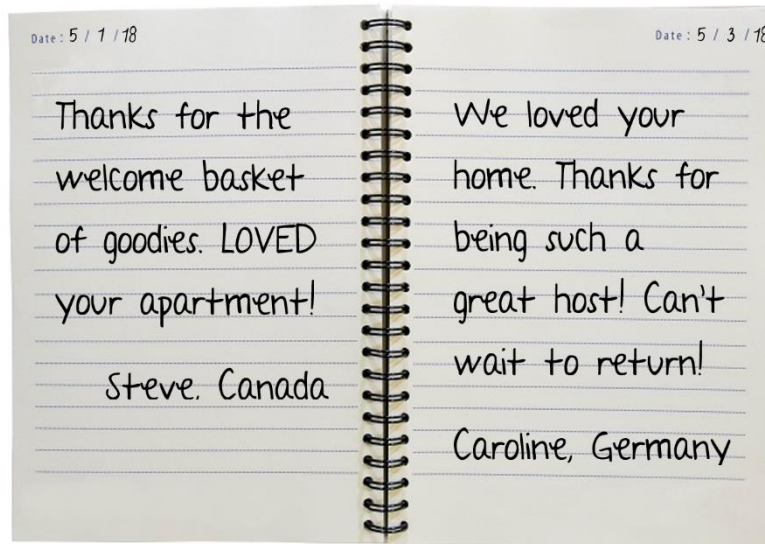 Date: 5 / 1 / 18
Thanks for the
welcome basket
of goodies. LOVED
your apartment!
Steve. Canada
Date: 5 / 3 / 18
We loved your
home. Thanks for
being such a
great host! Can't
wait to return!
Caroline, Germany